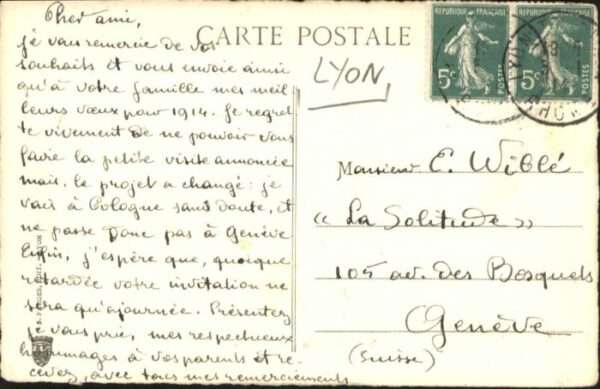 Cher ami,
je vous remercie de vos
souhaits et vous envoie ainsi
qu'à votre famille mes meil
leurs vœux pour 1914. Je regret
te vivement de ne pouvoir vous
faire la petite visite annoncée
mais le projet a changé: je
vais à Cologne sans doute, et
ne passe donc pas à Genève
Enfin, j'espère que, quoique
retardée votre invitation ne
sera qu'ajournée. Présentez
je vous prie, mes respectueux
hommages à vos parents et re-
cevez, avec tous mes remerciements
CARTE POSTALE
LYON
REPUBLIQUE FRANÇAISE
5c
POSTES
REPUBLIQUE FRANÇAISE
5c
POSTES
Monsieur E. Wiblé
« La Solitude »
105 av. des Bosquets
Genève
(Suisse)